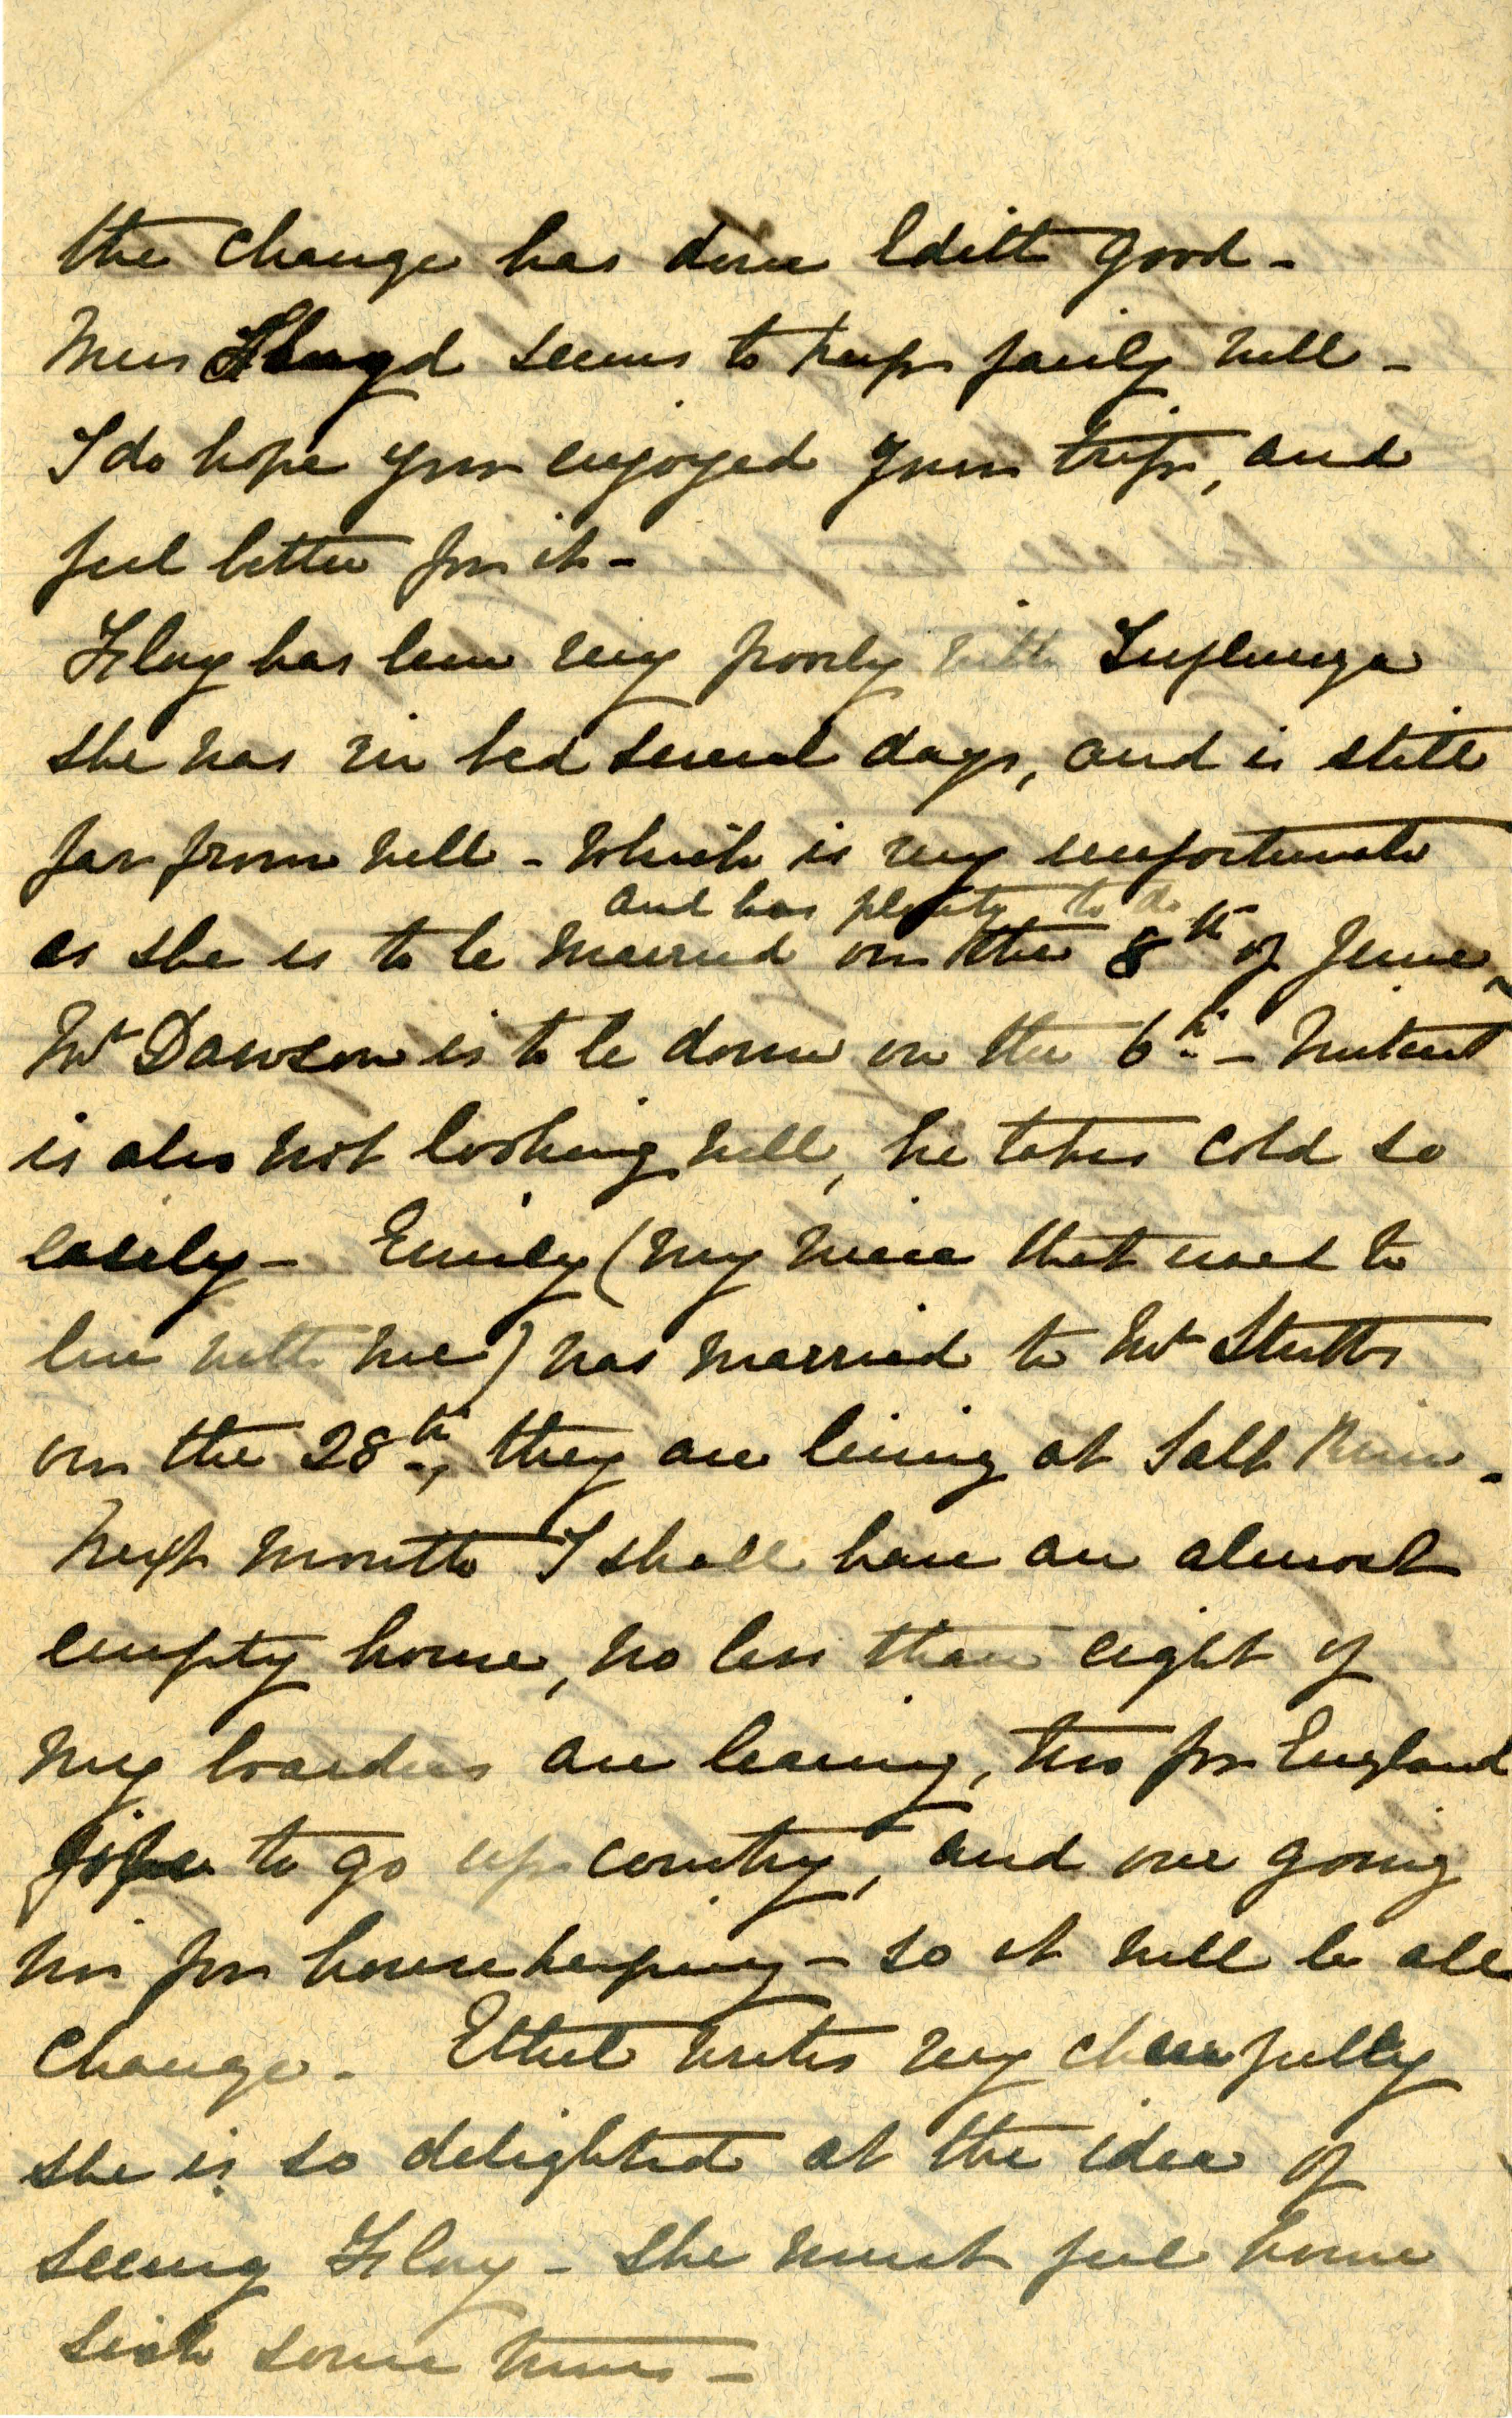 the change has done Edith good -
Miss Lloyd seems to keep fairly well -
I do hope you enjoyed your trip, and
feel better for it -
Floy has been very poorly with Influenza
she was in bed several days, and is still
far from well - which is very unfortunate
and has plenty to do
as she is to be married on the 8th of June,
Mr Dawson is to be down on the 6th. -
is also not looking well, he takes cold so
easily - Emily (my niece that used to
live with me) was married to Mr Stutts
on the 28th, they are living at Salt River -
Next month I shall have an almost
empty house, no less than eight of
my boarders are leaving, two for England
five to go up country, and one going
in for housekeeping - so it will be all
change. Ethel writes very cheerfully
she is so delighted at the idea of
seeing Floy - she must feel home
sick some times -